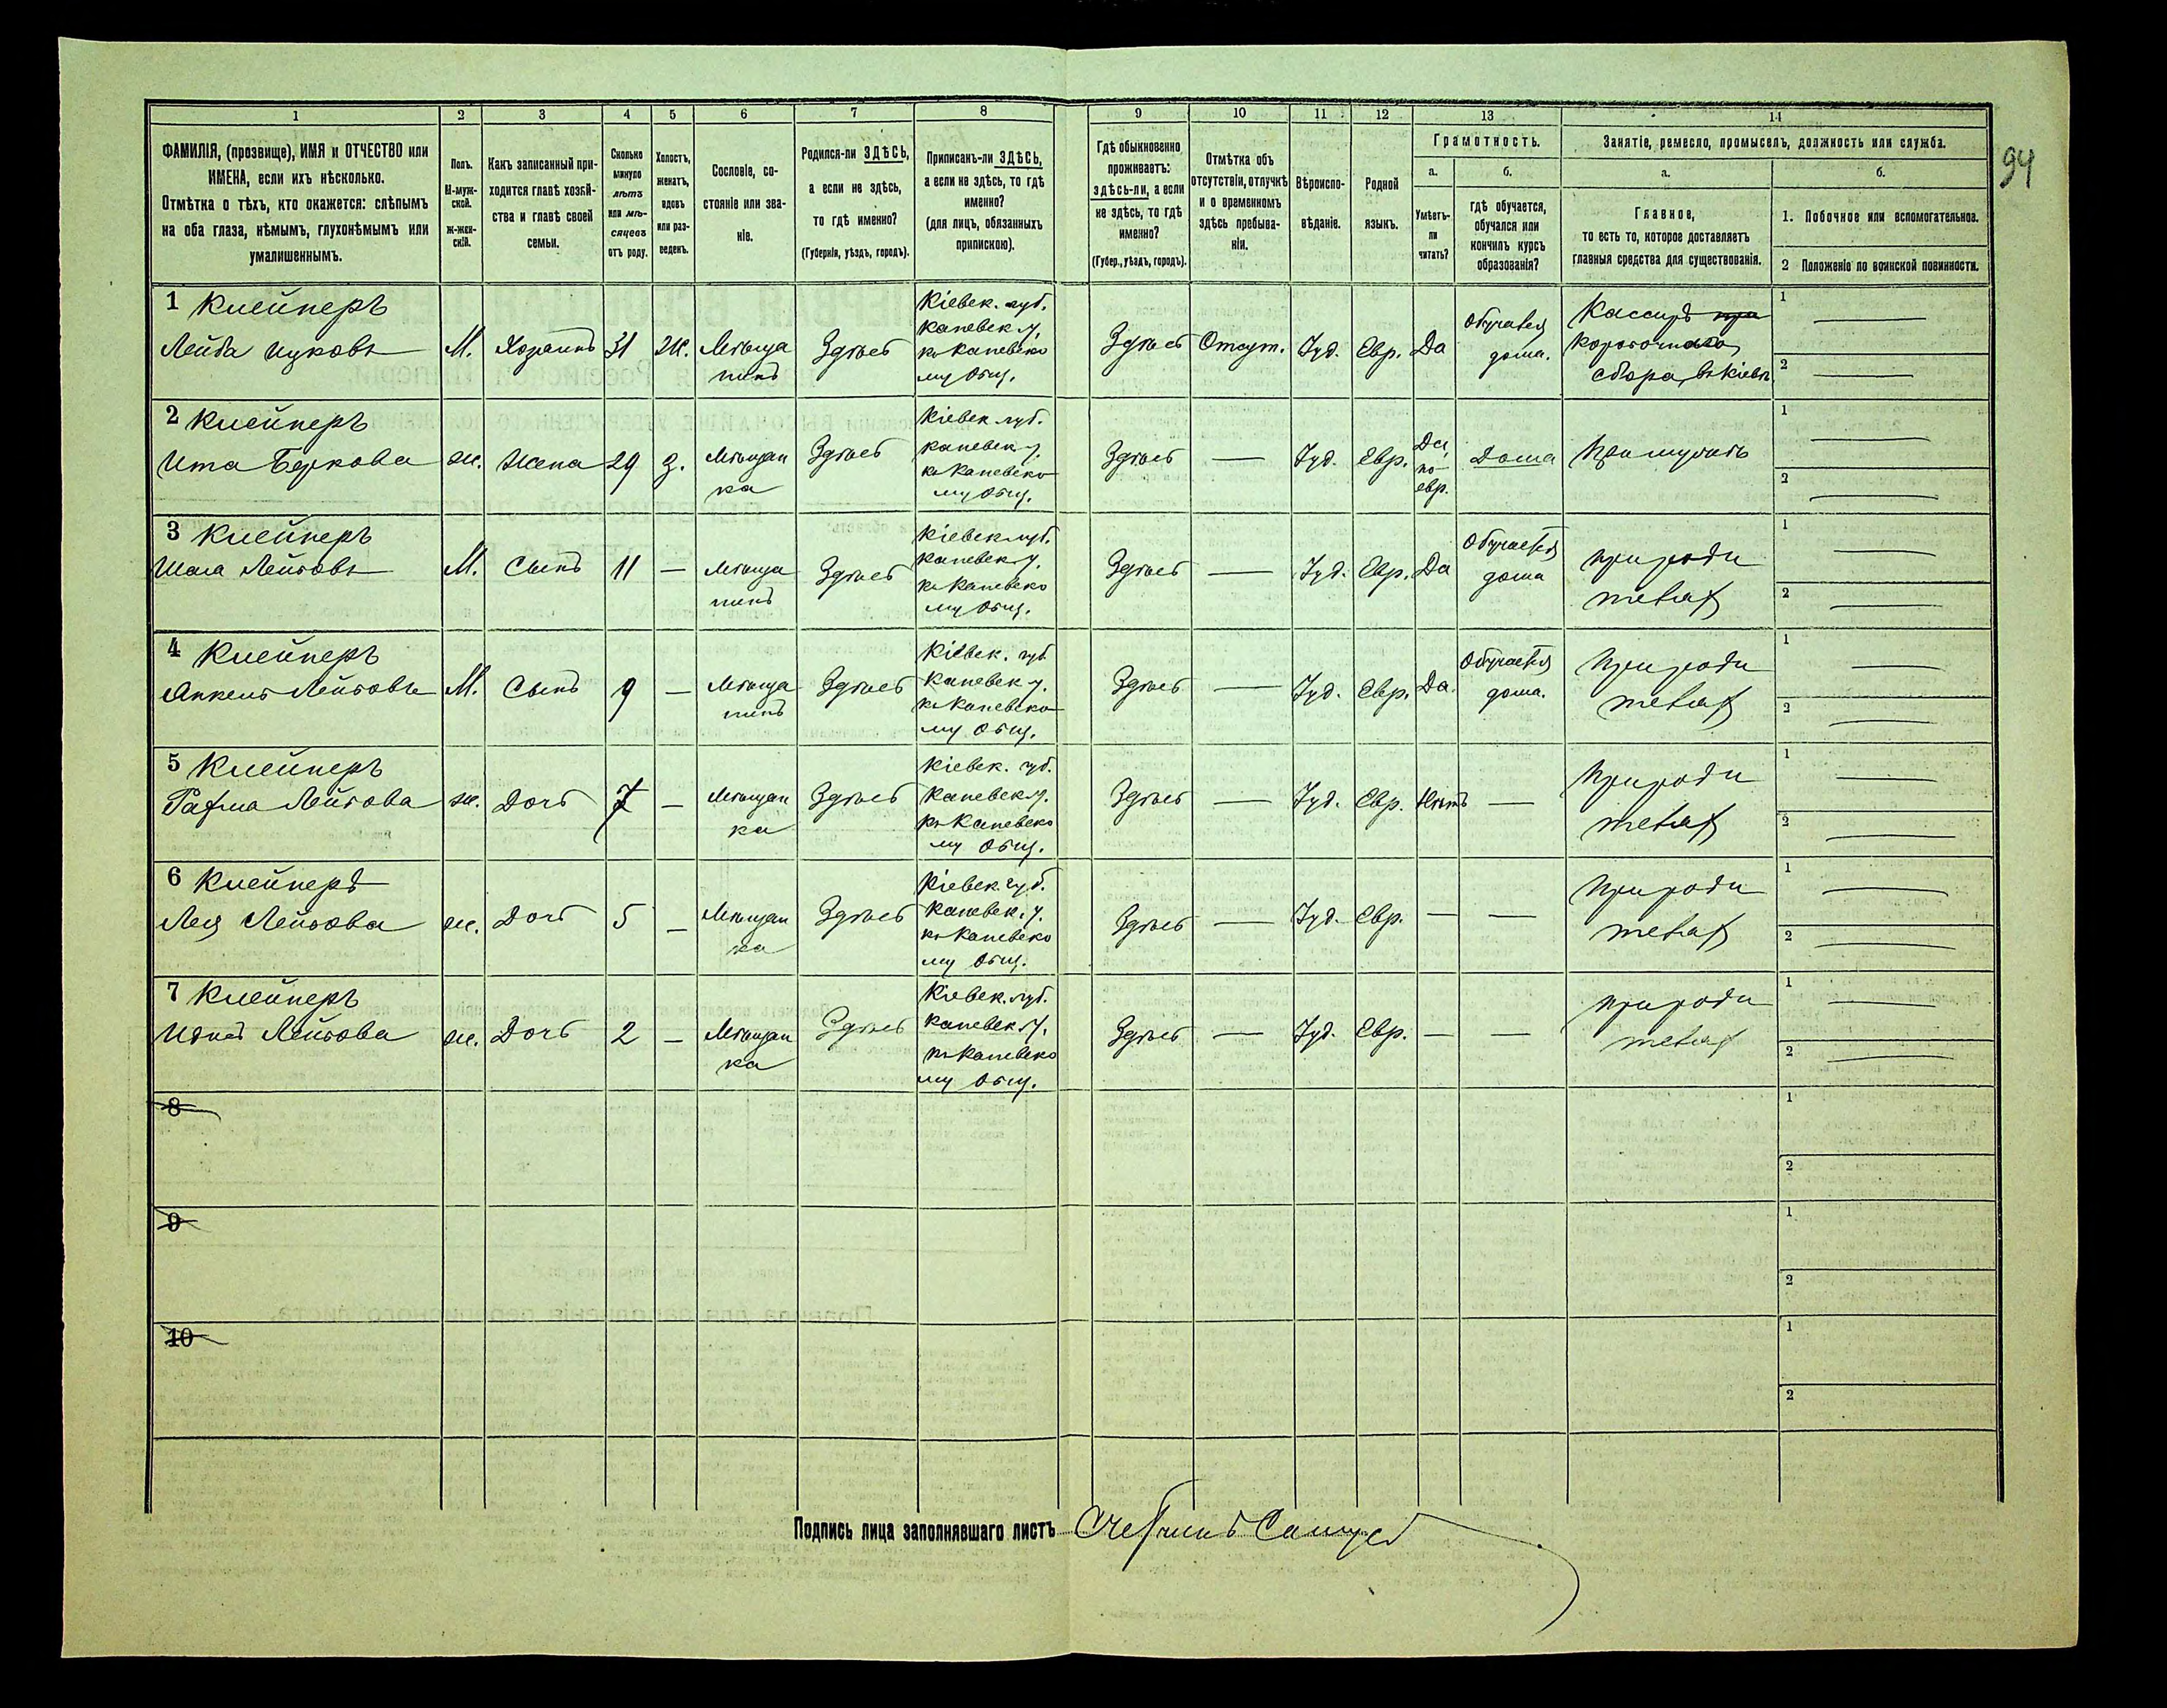 94
1
2
3
4
5
6
7
8
9
10
11
12
13
14
ФАМИЛІЯ, (прозвище), ИМЯ и ОТЧЕСТВО или
ИМЕНА, если ихъ нѣсколько.
Отмѣтка о тѣхъ, кто окажется: слѣпымъ
на оба глаза, нѣмымъ, глухонѣмымъ или
умалишеннымъ.
Полъ.
М-муж-
ской.
Ж-жен-
скій.
Какъ записанный при-
ходится главѣ хозяй-
ства и главѣ своей
семьи.
Сколько
минуло
лѣтъ
или мѣ-
сяцевъ
отъ роду.
Холостъ,
женатъ,
вдовъ
или раз-
веденъ.
Сословіе, со-
стояніе или зва-
ніе.
Родился-ли ЗДѢСЬ,
а если не здѣсь,
то гдѣ именно?
(Губернія, уѣздъ, городъ).
Приписанъ-ли ЗДѢСЬ,
а если не здѣсь, то гдѣ
именно?
(для лицъ, обязанныхъ
припискою).
Гдѣ обыкновенно
проживаетъ:
здѣсь-ли, а если
не здѣсь, то гдѣ
именно?
(Губер., уѣздъ, городъ).
Отмѣтка объ
отсутствіи, отлучкѣ
и о временномъ
здѣсь пребыва-
ніи.
Вѣроиспо-
вѣданіе.
Родной
языкъ.
Грамотность.
а.
Умѣетъ-
ли
читать?
б.
гдѣ обучается,
обучался или
кончилъ курсъ
образованія?
Занятіе, ремесло, промыселъ, должность или служба.
а.
Главное,
то есть то, которое доставляетъ
главныя средства для существованія.
б.
1. Побочное или вспомогательное.
2 Положеніе по воинской повинности.
1 Клейнеръ
Лейба Ицковъ
М.
Хозяинъ
31
Ж.
Мѣща
нинъ
Здѣсь
Кіевск. губ.
Каневск у.
къ Каневско
му Общ.
Здѣсь
Отсут.
Іуд.
Евр.
Да
Обучался
дома.
Кассиръ
Коробочнаго
сбора въ Кіевѣ
1
2
2 Клейнеръ
Ита Беркова
ж.
Жена
29
З.
Мѣщан
ка
Здѣсь
Кіевск губ.
Каневск у.
къ Каневско
му Общ.
Здѣсь
—
Іуд.
Евр.
Да,
по-
евр.
Дома
При мужѣ
1
2
3 Клейнеръ
Лейбовъ
М.
Сынъ
11
—
Мѣща
нинъ
Здѣсь
Кіевск губ.
Каневск у.
къ Каневско
му Общ.
Здѣсь
—
Іуд.
Евр.
Да
Обучается
дома
при роди
теляхъ
1
2
4 Клейнеръ
Янкель Лейбовъ
М.
Сынъ
9
—
Мѣща
нинъ
Здѣсь
Кіевск. губ
Каневск у.
къ Каневско
му Общ.
Здѣсь
—
Іуд.
Евр.
Да.
Обучается
дома.
При роди
теляхъ
1
2
5 Клейнеръ
Лейбова
ж.
Дочь
7
—
Мѣщан
ка
Здѣсь
Кіевск. губ.
Каневск у.
къ Каневско
му Общ.
Здѣсь
—
Іуд.
Евр.
Нѣтъ
—
При роди
теляхъ
1
2
6 Клейнеръ
Лея Лейбова
ж.
Дочь
5
—
Мѣщан
ка
Здѣсь
Кіевск. губ.
Каневск. у.
къ Каневско
му Общ.
Здѣсь
—
Іуд.
Евр.
—
—
При роди
теляхъ
1
2
7 Клейнеръ
Лейбова
ж.
Дочь
2
—
Мѣщан
ка
Здѣсь
Кіевск. губ.
Каневск. у.
къ Каневско
му Общ.
Здѣсь
—
Іуд.
Евр.
—
—
при роди
теляхъ
1
2
8
1
2
9
1
2
10
1
2
Подпись лица заполнявшаго листъ Счетчикъ